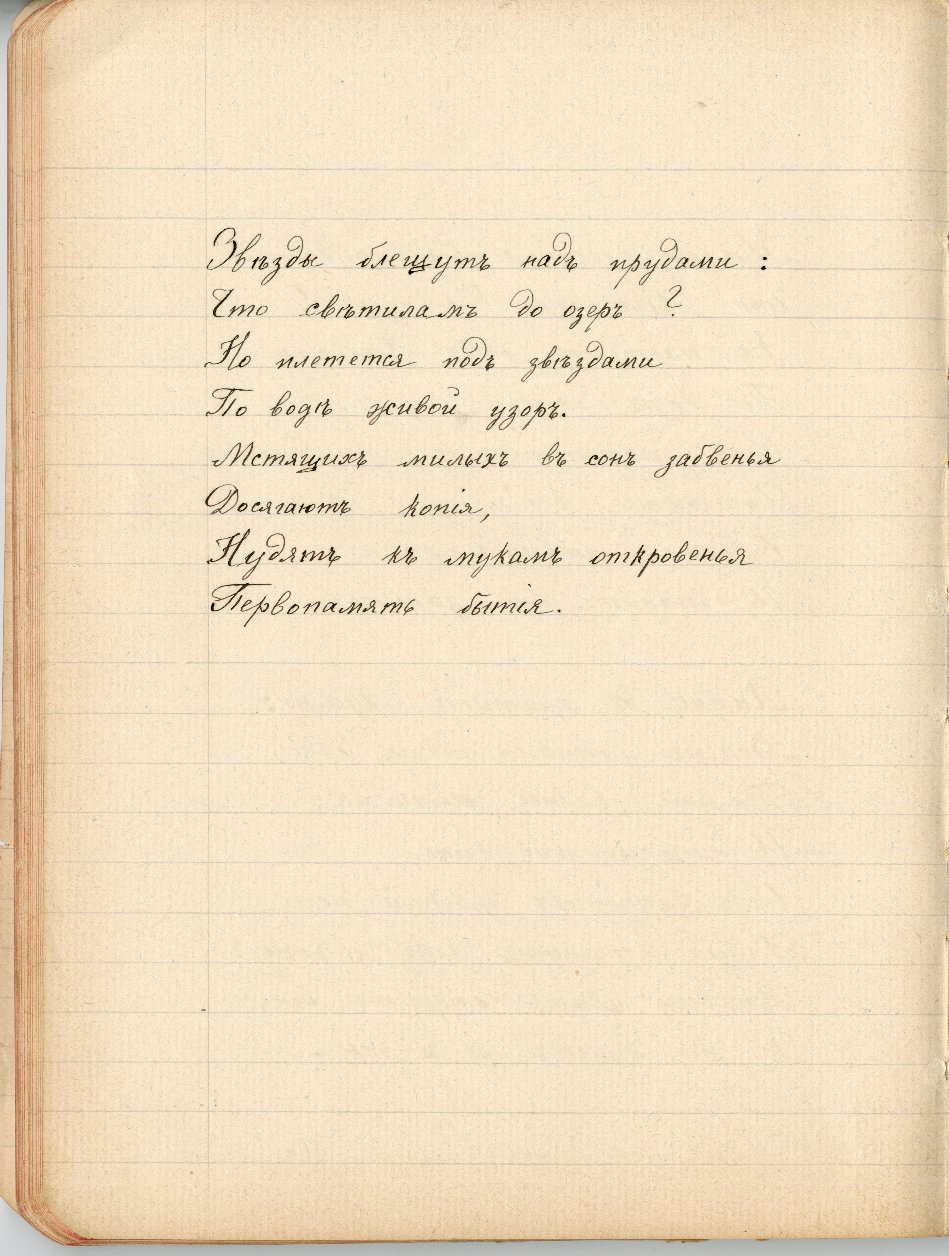 Звѣзды блещутъ надъ прудами :
Что свѣтиламъ до озеръ ?
Но плетется подъ звѣздами
По водѣ живой узоръ.
Мстящихъ милыхъ въ сонъ забвенья
Досягаютъ копія,
Нудятъ къ мукамъ откровенья
Первопамять бытія.